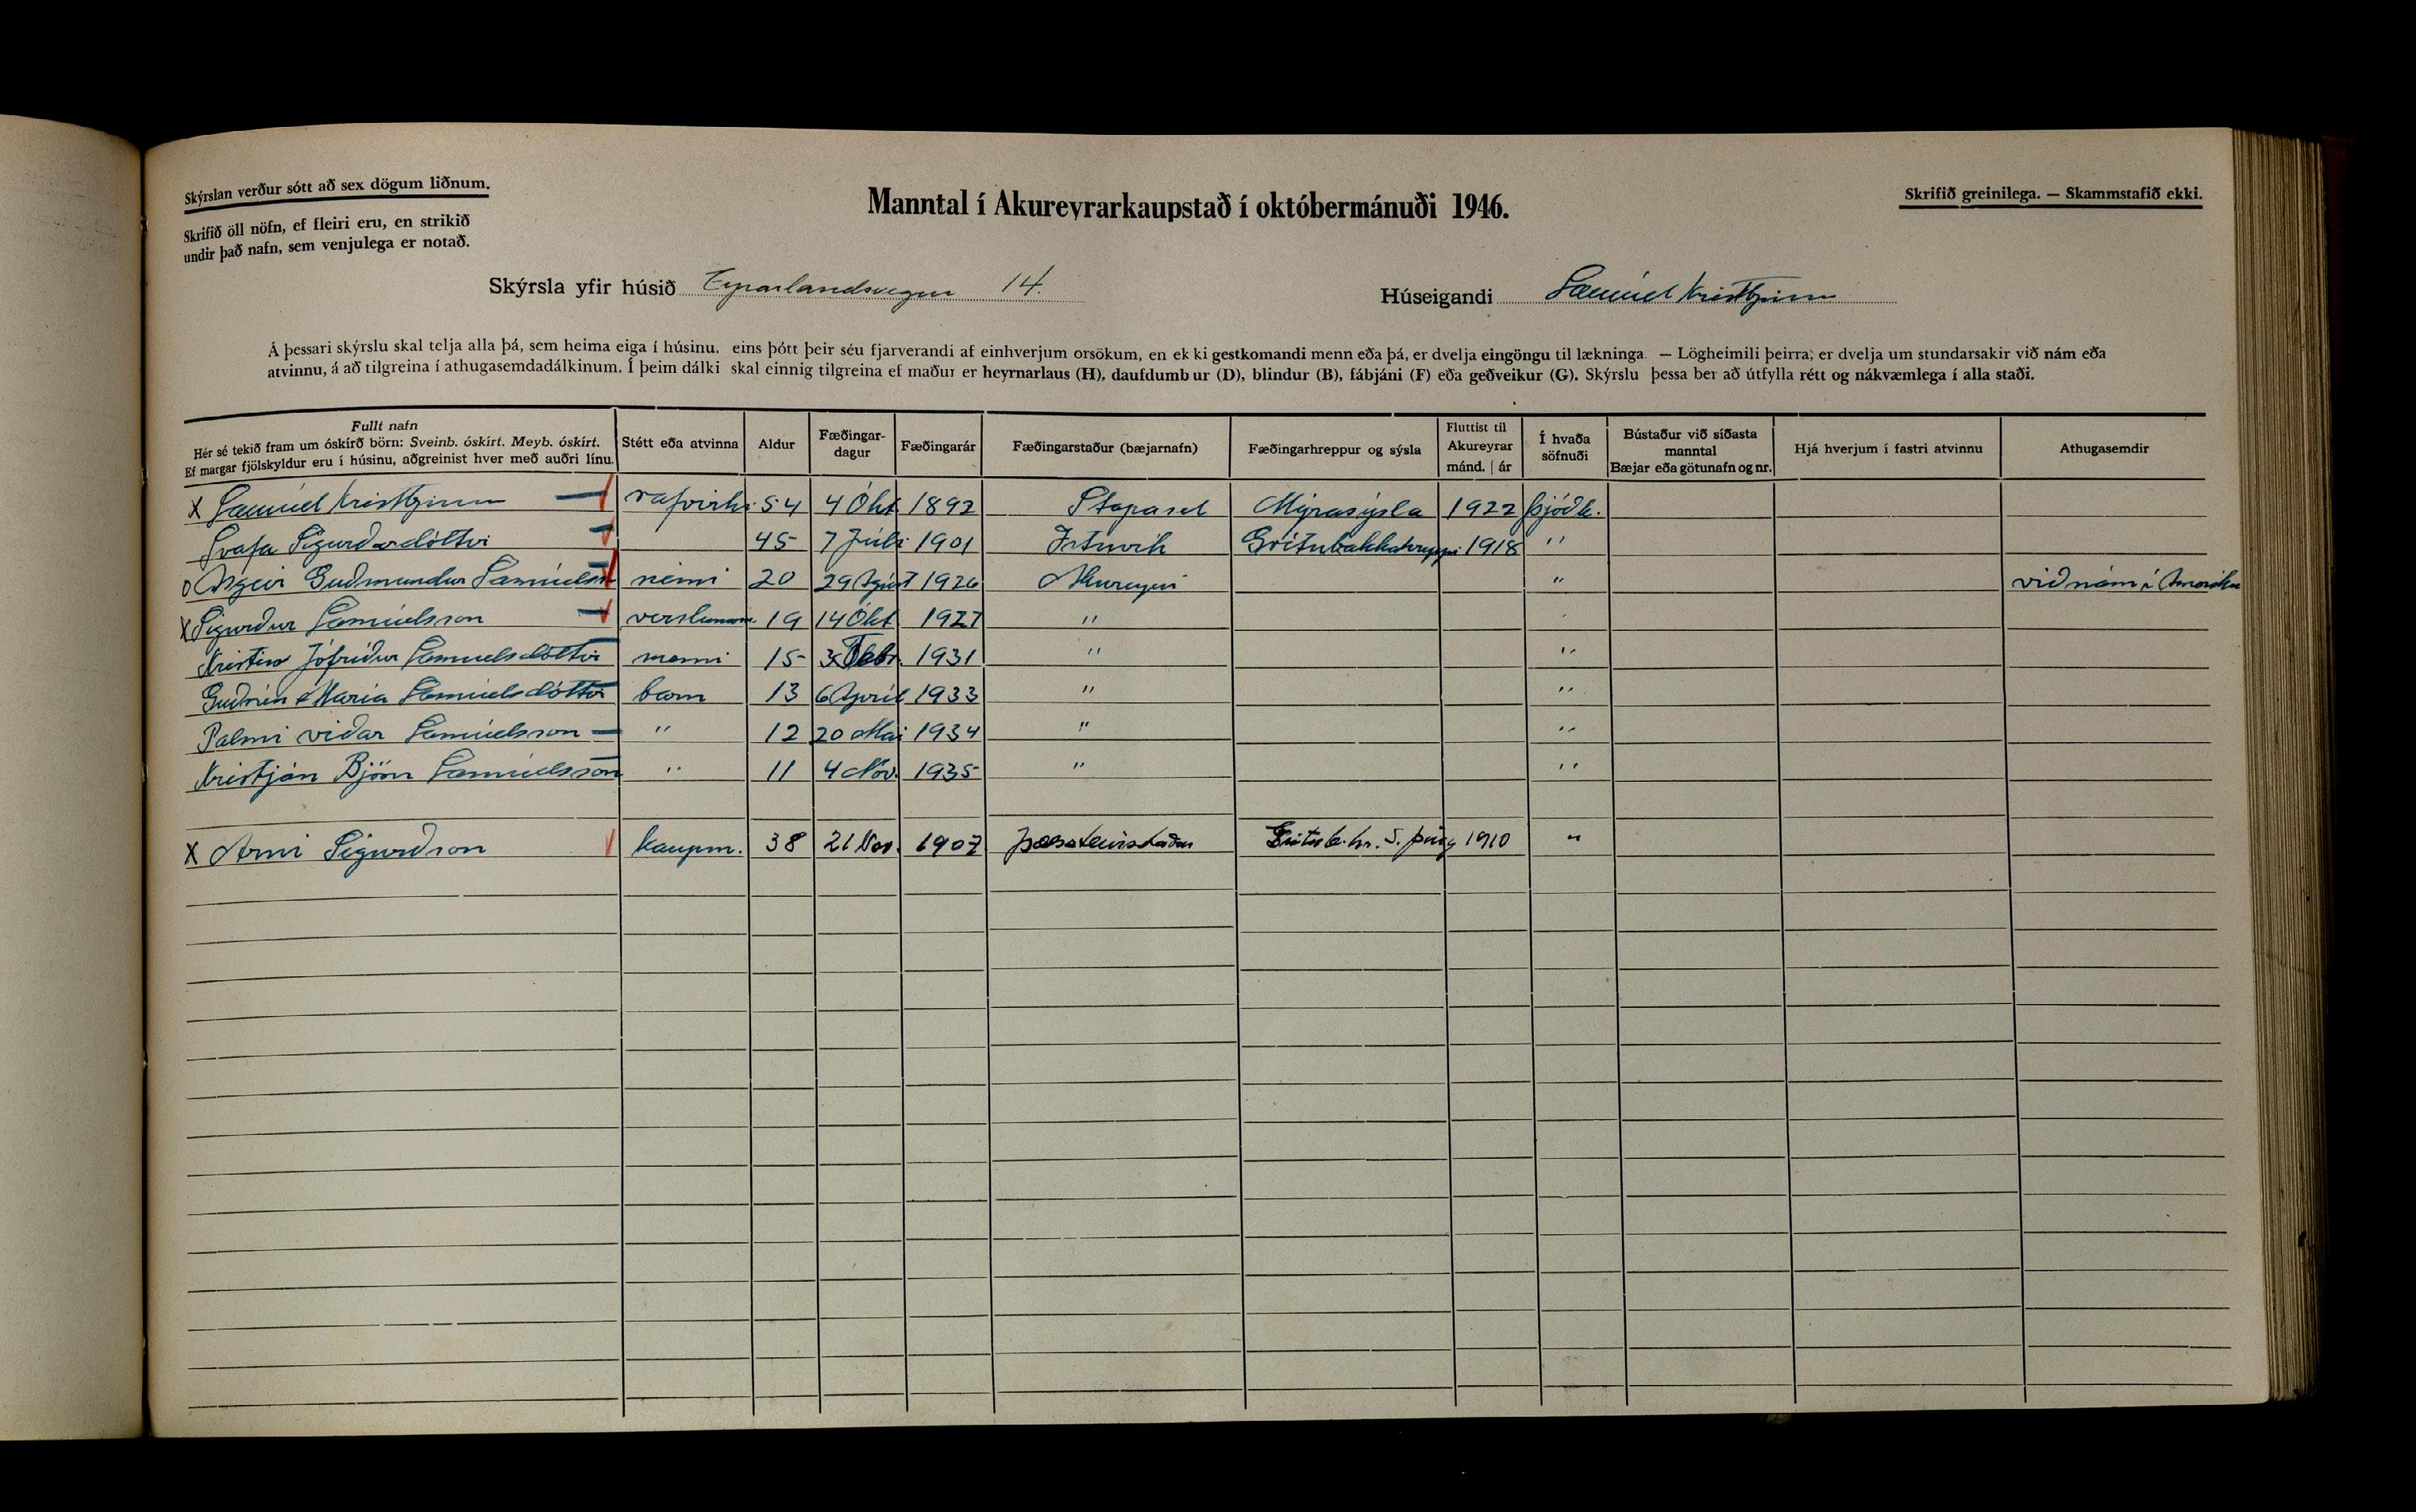 Skýrslan verður sótt að sex dögum liðnum.
Skrifið öll nöfn, ef fleiri eru, en strikið
undir það nafn, sem venjulega er notað.
Manntal í Akureyrarkaupstað í októbermánuði 1946.
Skrifið greinilega. — Skammstafið ekki.
Skýrsla yfir húsið Eyrarlandsvegur 14.
Húseigandi Samúel Kristbjarnar
Á þessari skýrslu skal telja alla þá, sem heima eiga í húsinu, eins þótt þeir séu fjarverandi af einhverjum orsökum, en ekki gestkomandi menn eða þá, er dvelja eingöngu til lækninga. — Lögheimili þeirra, er dvelja um stundarsakir við nám eða
atvinnu, á að tilgreina í athugasemdadálkinum. Í þeim dálki skal einnig tilgreina ef maður er heyrnarlaus (H), daufdumbur (D), blindur (B), fábjáni (F) eða geðveikur (G). Skýrslu þessa ber að útfylla rétt og nákvæmlega í alla staði.
Fullt nafn
Hér sé tekið fram um óskírð börn: Sveinb. óskírt. Meyb. óskírt.
Ef margar fjölskyldur eru í húsinu, aðgreinist hver með auðri línu.
Stétt eða atvinna
Aldur
Fæðingar-
dagur
Fæðingarár
Fæðingarstaður (bæjarnafn)
Fæðingarhreppur og sýsla
Fluttist til
Akureyrar
mánd. | ár
Í hvaða
söfnuði
Bústaður við síðasta
manntal
Bæjar eða götunafn og nr.
Hjá hverjum í fastri atvinnu
Athugasemdir
X Samúel rafvirki 54 4 Okt 1892 Stapasel Mýrasýsla 1922 Þjóðk.
Svafa Sigurðardóttir 45 7 Júli 1901 Grítubakkahreppi 1918 "
o Asgeir Guðmundur Samúelsson nemi 20 29 Agúst 1926 Akureyri " við nám í Ameríku
X Sigurður Samúelsson verslunarm. 19 14 Okt 1927 "
Kristín Jófríður Samúelsdóttir nemi 15 3 Febr. 1931 " "
Guðrún María Samúelsdóttir barn 13 6 Apríl 1933 " "
Palmi viðar Samúelsson " 12 20 Mai 1934 " "
Kristján Björn Samúelsson " 11 4 Nóv. 1935 " "
X Arni Sigurðson kaupm. 38 21 Nóv. 1907 S. þing 1910 "